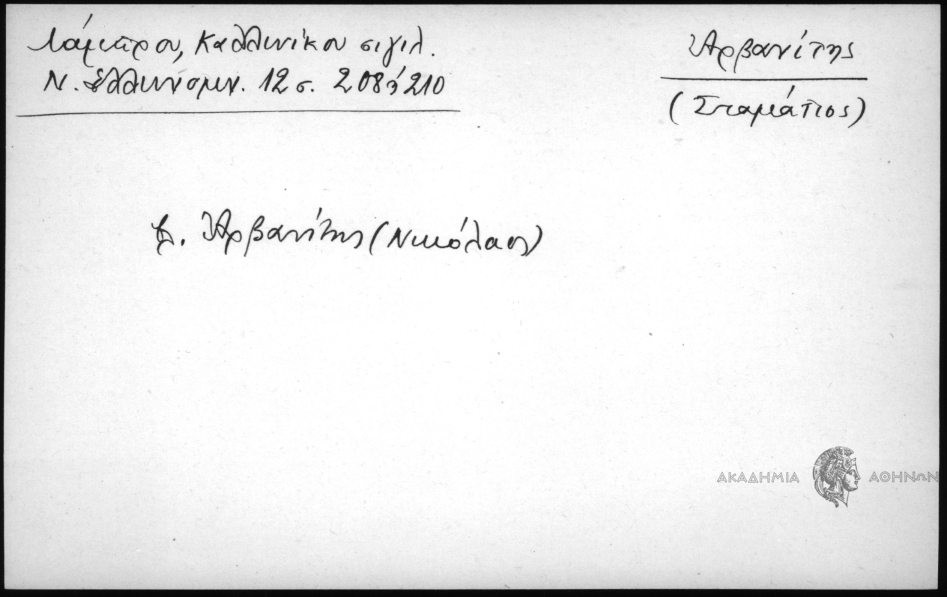 Λάμπρου, Καλλινίκου σιγιλ.
Ν. Ἑλληνομν. 12 σ. 208 ἑ 210
Ἀρβανίτης
(Σταμάτιος)
β. Ἀρβανίτης (Νικόλαος)
ΑΚΑΔΗΜΙΑ ΑΘΗΝΩΝ